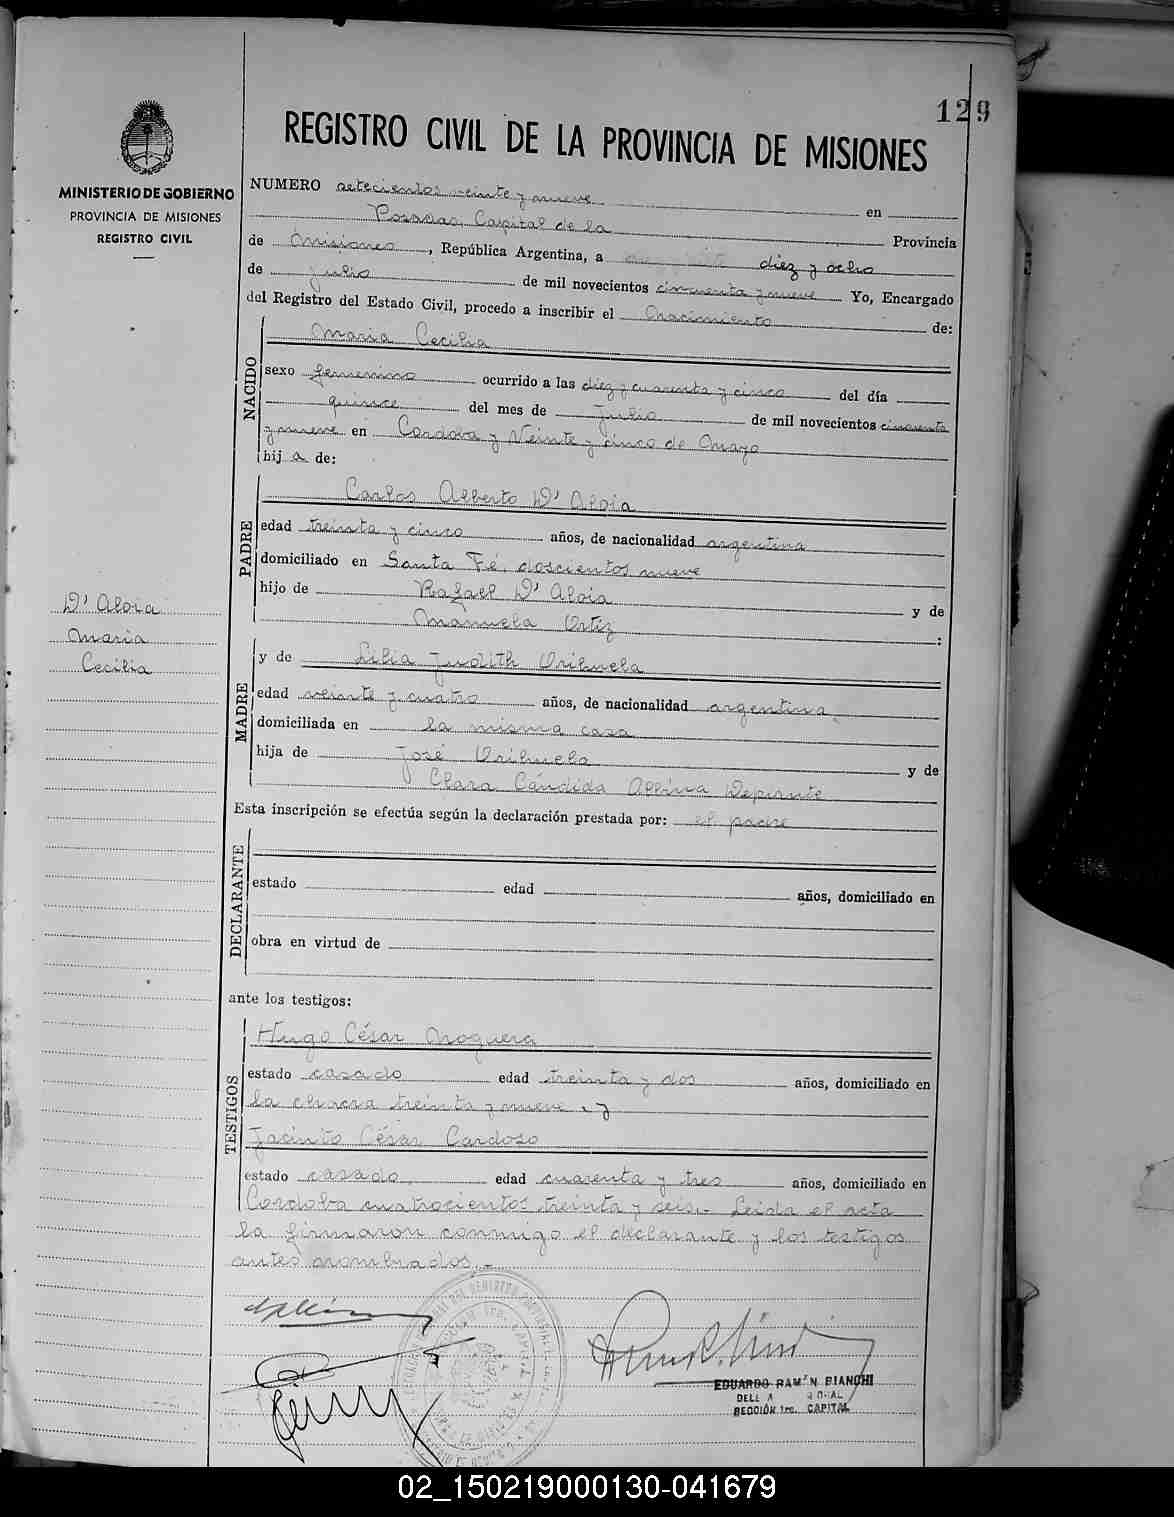 129
REGISTRO CIVIL DE LA PROVINCIA DE MISIONES
MINISTERIO DE GOBIERNO
PROVINCIA DE MISIONES
REGISTRO CIVIL
NUMERO setecientos veinte y nueve en
Posadas, Capital de la Provincia
de Misiones, República Argentina, a diez y ocho
de julio de mil novecientos cincuenta y nueve Yo, Encargado
del Registro del Estado Civil, procedo a inscribir el Nacimiento de:
NACIDO
Maria Cecilia
sexo femenino ocurrido a las diez y cuarenta y cinco del día
quince del mes de Julio de mil novecientos cincuenta
y nueve en Cordoba y Veinte y cinco de Mayo
hij a de:
PADRE
Carlos Alberto D' Aloia
edad treinta y cinco años, de nacionalidad argentina
domiciliado en Santa Fé, doscientos nueve
hijo de Rafael D' Aloia y de
Manuela Ortiz :
D' Aloia
Maria
Cecilia
MADRE
y de Lilia Judith Orihuela
edad veinte y cuatro años, de nacionalidad argentina
domiciliada en la misma casa
hija de José Orihuela y de
Clara Cándida Albina
Esta inscripción se efectúa según la declaración prestada por: el padre
DECLARANTE
estado edad años, domiciliado en
obra en virtud de
ante los testigos:
TESTIGOS
Hugo César Noguera
estado casado edad treinta y dos años, domiciliado en
la chacra treinta y nueve, y
Jacinto César Cardoso
estado casado, edad cuarenta y tres años, domiciliado en
Cordoba cuatrocientos treinta y seis.- Leida el acta
la firmaron conmigo el declarante y los testigos
antes nombrados.-
EDUARDO RAMÓN BIANCHI
SECCIÓN 1ra. CAPITAL
02_150219000130-041679